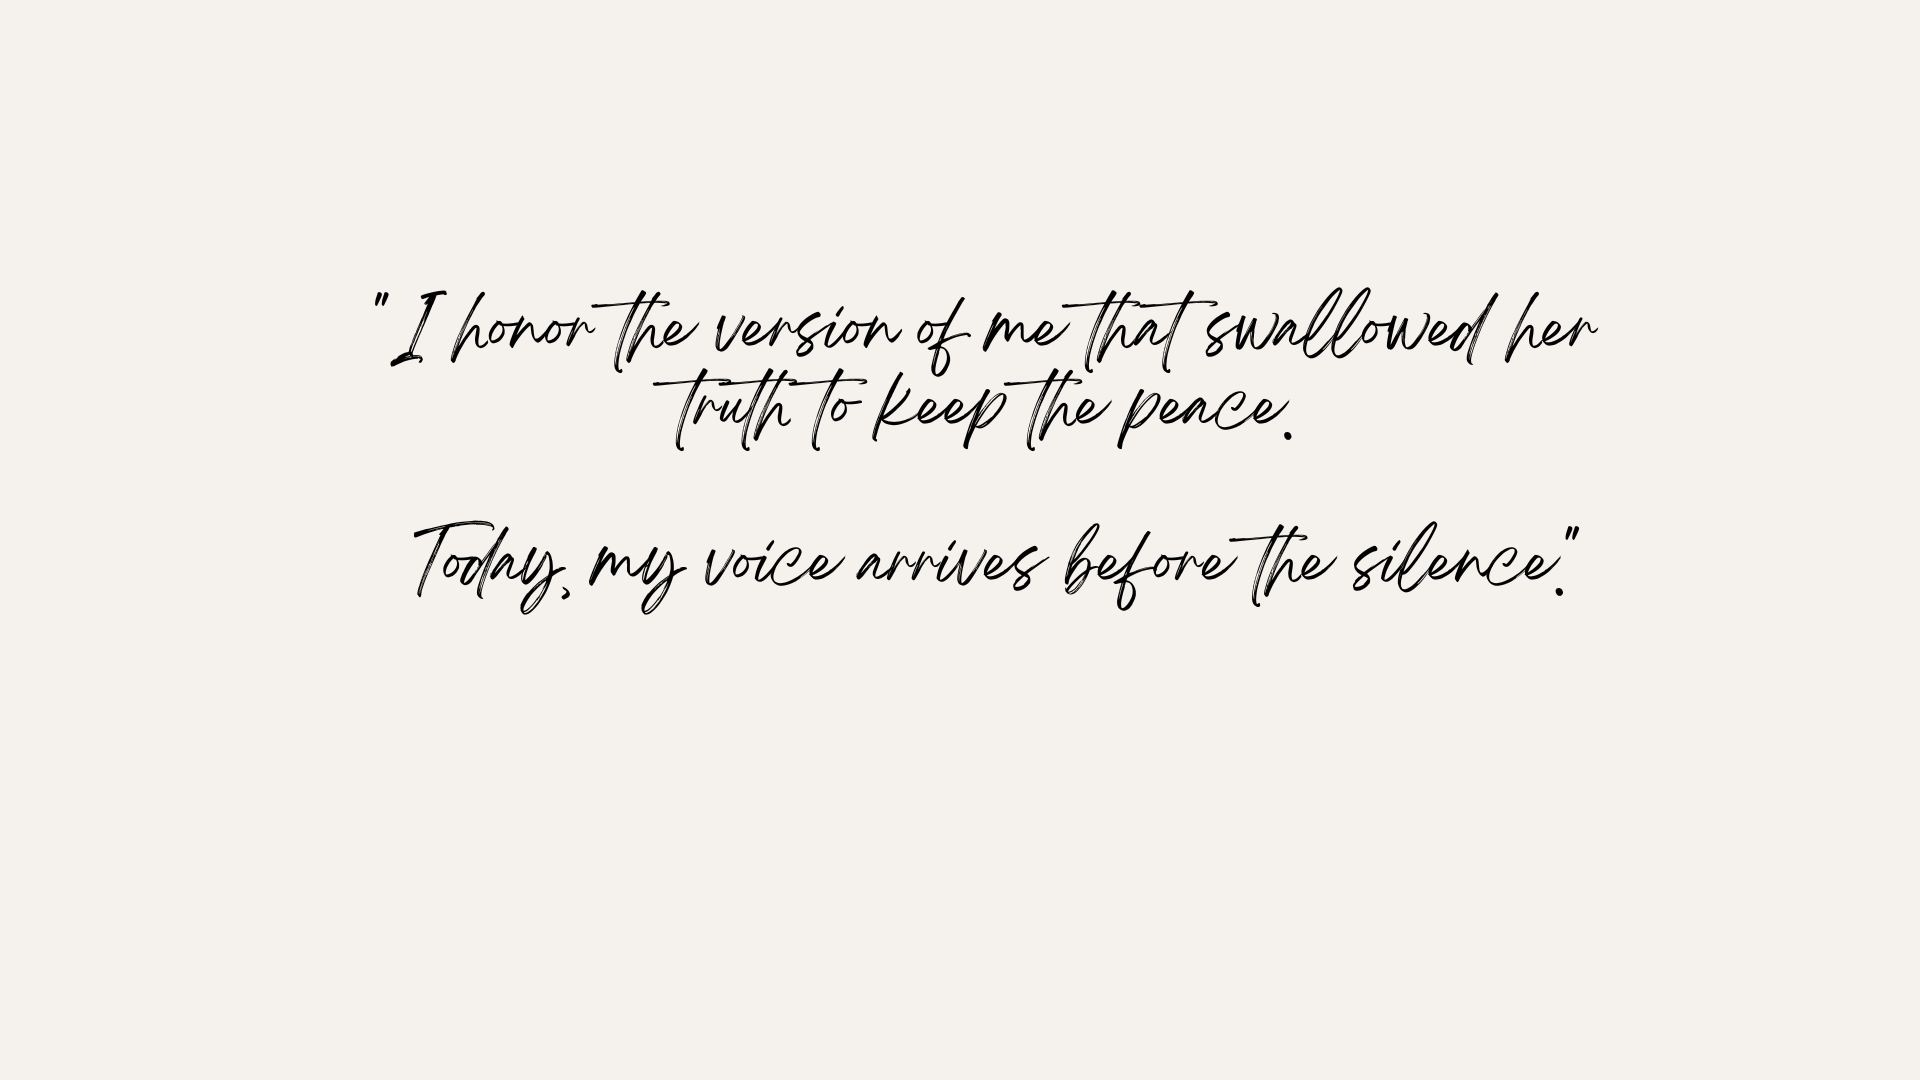 "I honor the version of me that swallowed her
truth to keep the peace.
Today, my voice arrives before the silence."